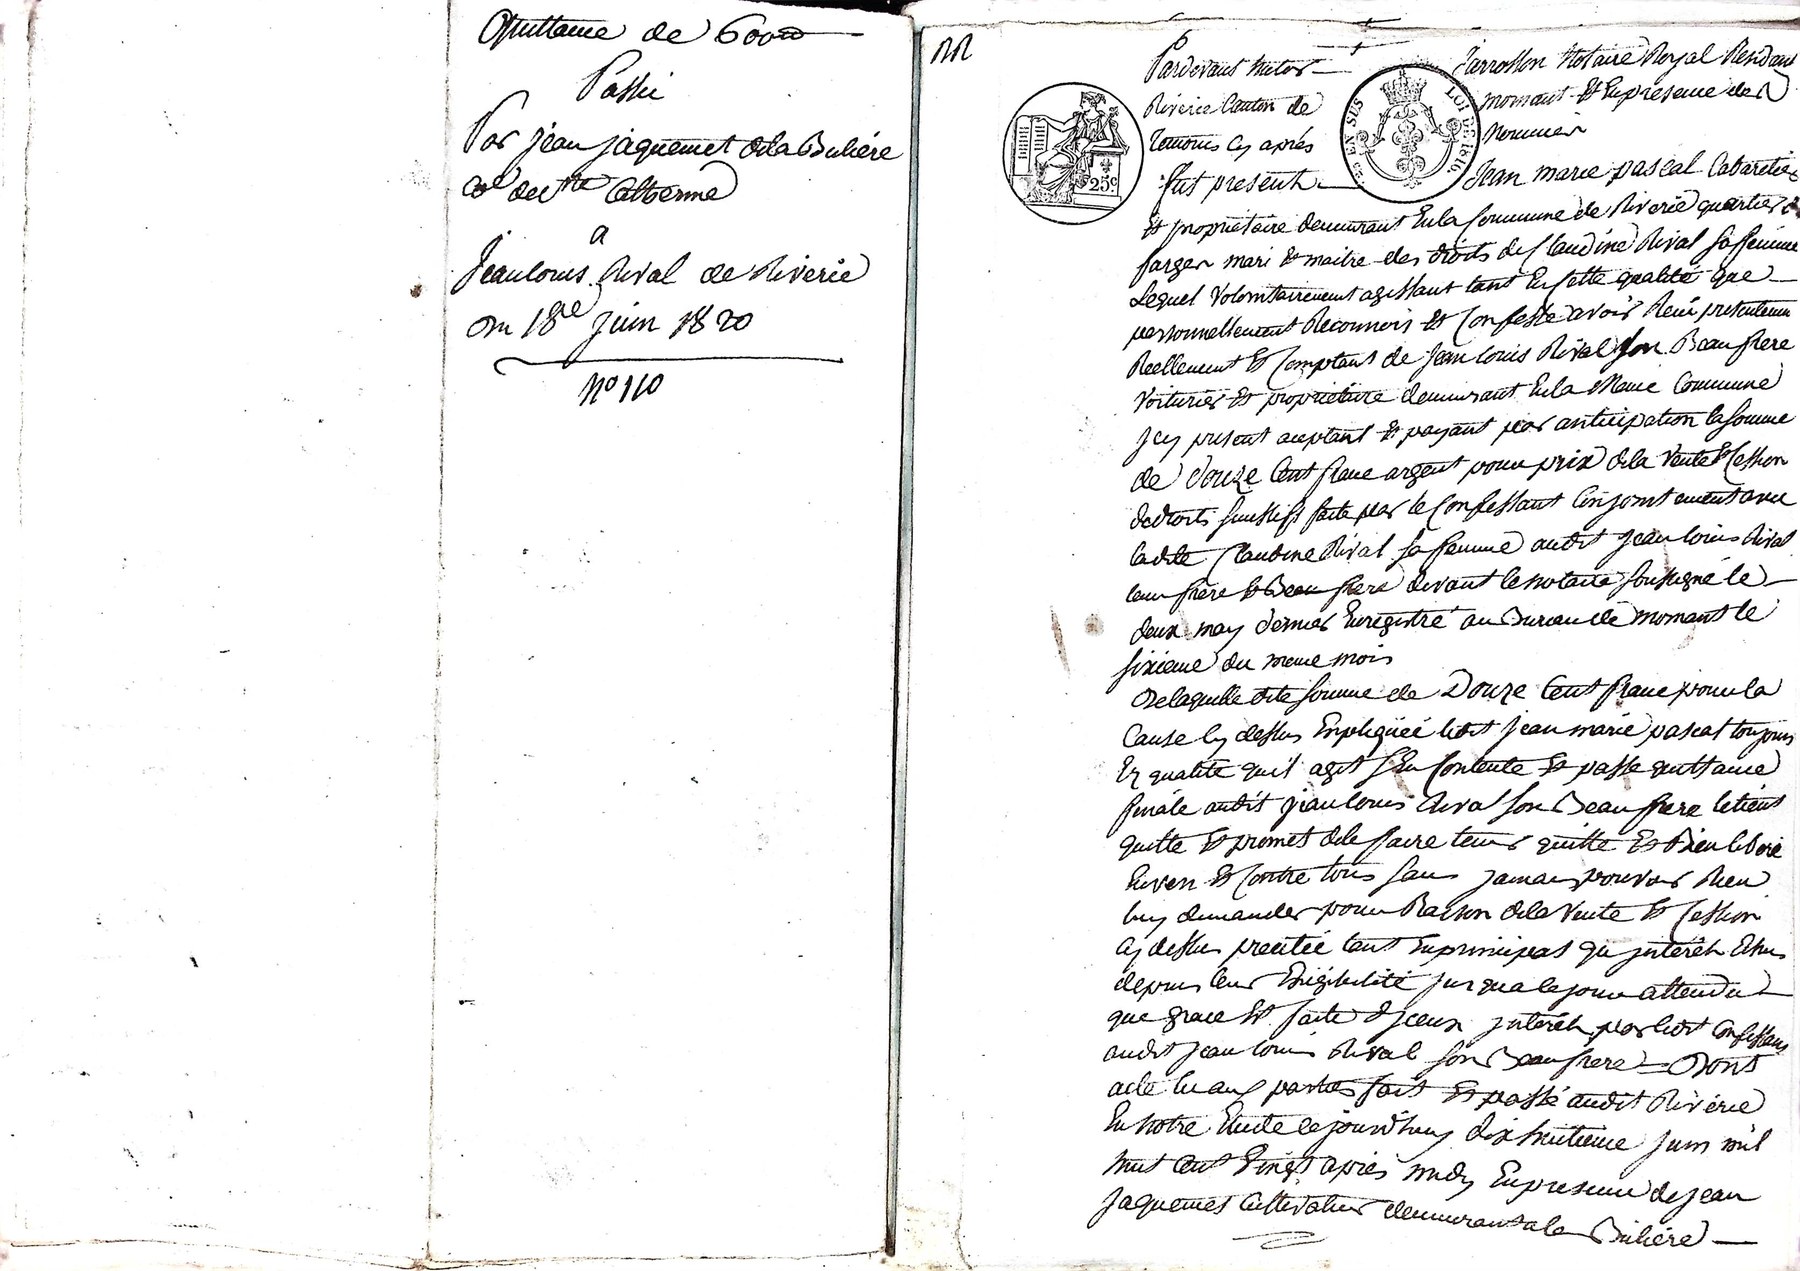 Quittance de 600
Passée
Par jean jaquemet dela Bulière
Cne de Ste Catherine
a
Jean louis Rival de Riverie
Du 18e juin 1820
No 110
Pardevant
Jarrosson Notaire Royal Residant
Riverie Canton de
mornant Et En presence des
temoins cy après
Nommés
fut present
25c
LOI DE 1816
EN SUS
Jean marie pascal Cabaretier
Et propriétaire demeurant En la Commune de Riverie quartier
farges mari Et maitre des droits de Claudine Rival sa femme
Lequel Volontairement agissant tant En cette qualité que
personnellement Reconnois Et Confesse avoir Recu presentement
Réellement Et Comptant de Jean louis Rival son Beau frere
Voiturier Et propriétaire demeurant En la Même Commune
Jcy present aceptant Et payant par anticipation la somme
de douze Cent franc argent pour prix dela Vente Et Cession
de droits successifs faite par le Confessant Conjointement avec
ladite Claudine Rival sa femme audit Jean louis Rival
leur frère Et Beau frere devant le notaire soussigné le
deux may dernier Enregistré au Bureau de mornant le
sixieme du meme mois
De laquelle dite somme de Douze Cent franc pour la
Cause Cy dessus Expliquée ledit Jean marie pascal toujours
En qualité qu'il agit s'En Contente Et passe quittance
finale audit jean louis Rival son Beau frere le tient
quitte Et promet dele faire tenir quitte Et Bien liberé
Envers Et Contre tous sans jamais pouvoir Rien
luy demander pour Raison dela Vente Et Cession
Cy dessus precitée tant En principal qu'jnterêts
depuis leur Exigibilité jusqua ce jour attendu
que grace Et faite d'jceux jnterêts par ledit Confessant
audit Jean louis Rival son Beau frere Dont
acte lu aux parties fait Et passé audit Riverie
En notre Etude ce jourd'huy dix huitieme juin mil
huit Cent Vingt après midy En presence de jean
Jaquemet Cultivateur demeurant a la Bulière